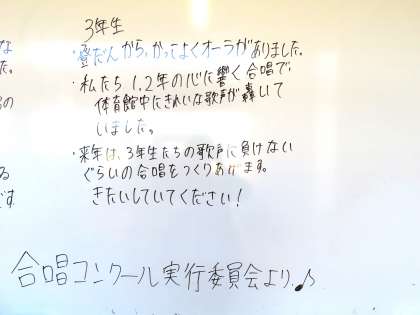 な
た。
3年生
・登だんから、かっこよくオーラがありました。
・私たち1,2年の心に響く合唱で、
体育館中にきれいな歌声が轟いて
いました。
の
・来年は、3年生たちの歌声に負けない
ぐらいの合唱をつくりあげます。
きたいしていてください！
る
です
合唱コンクール実行委員会より♪